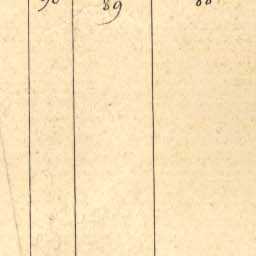 90 89 88